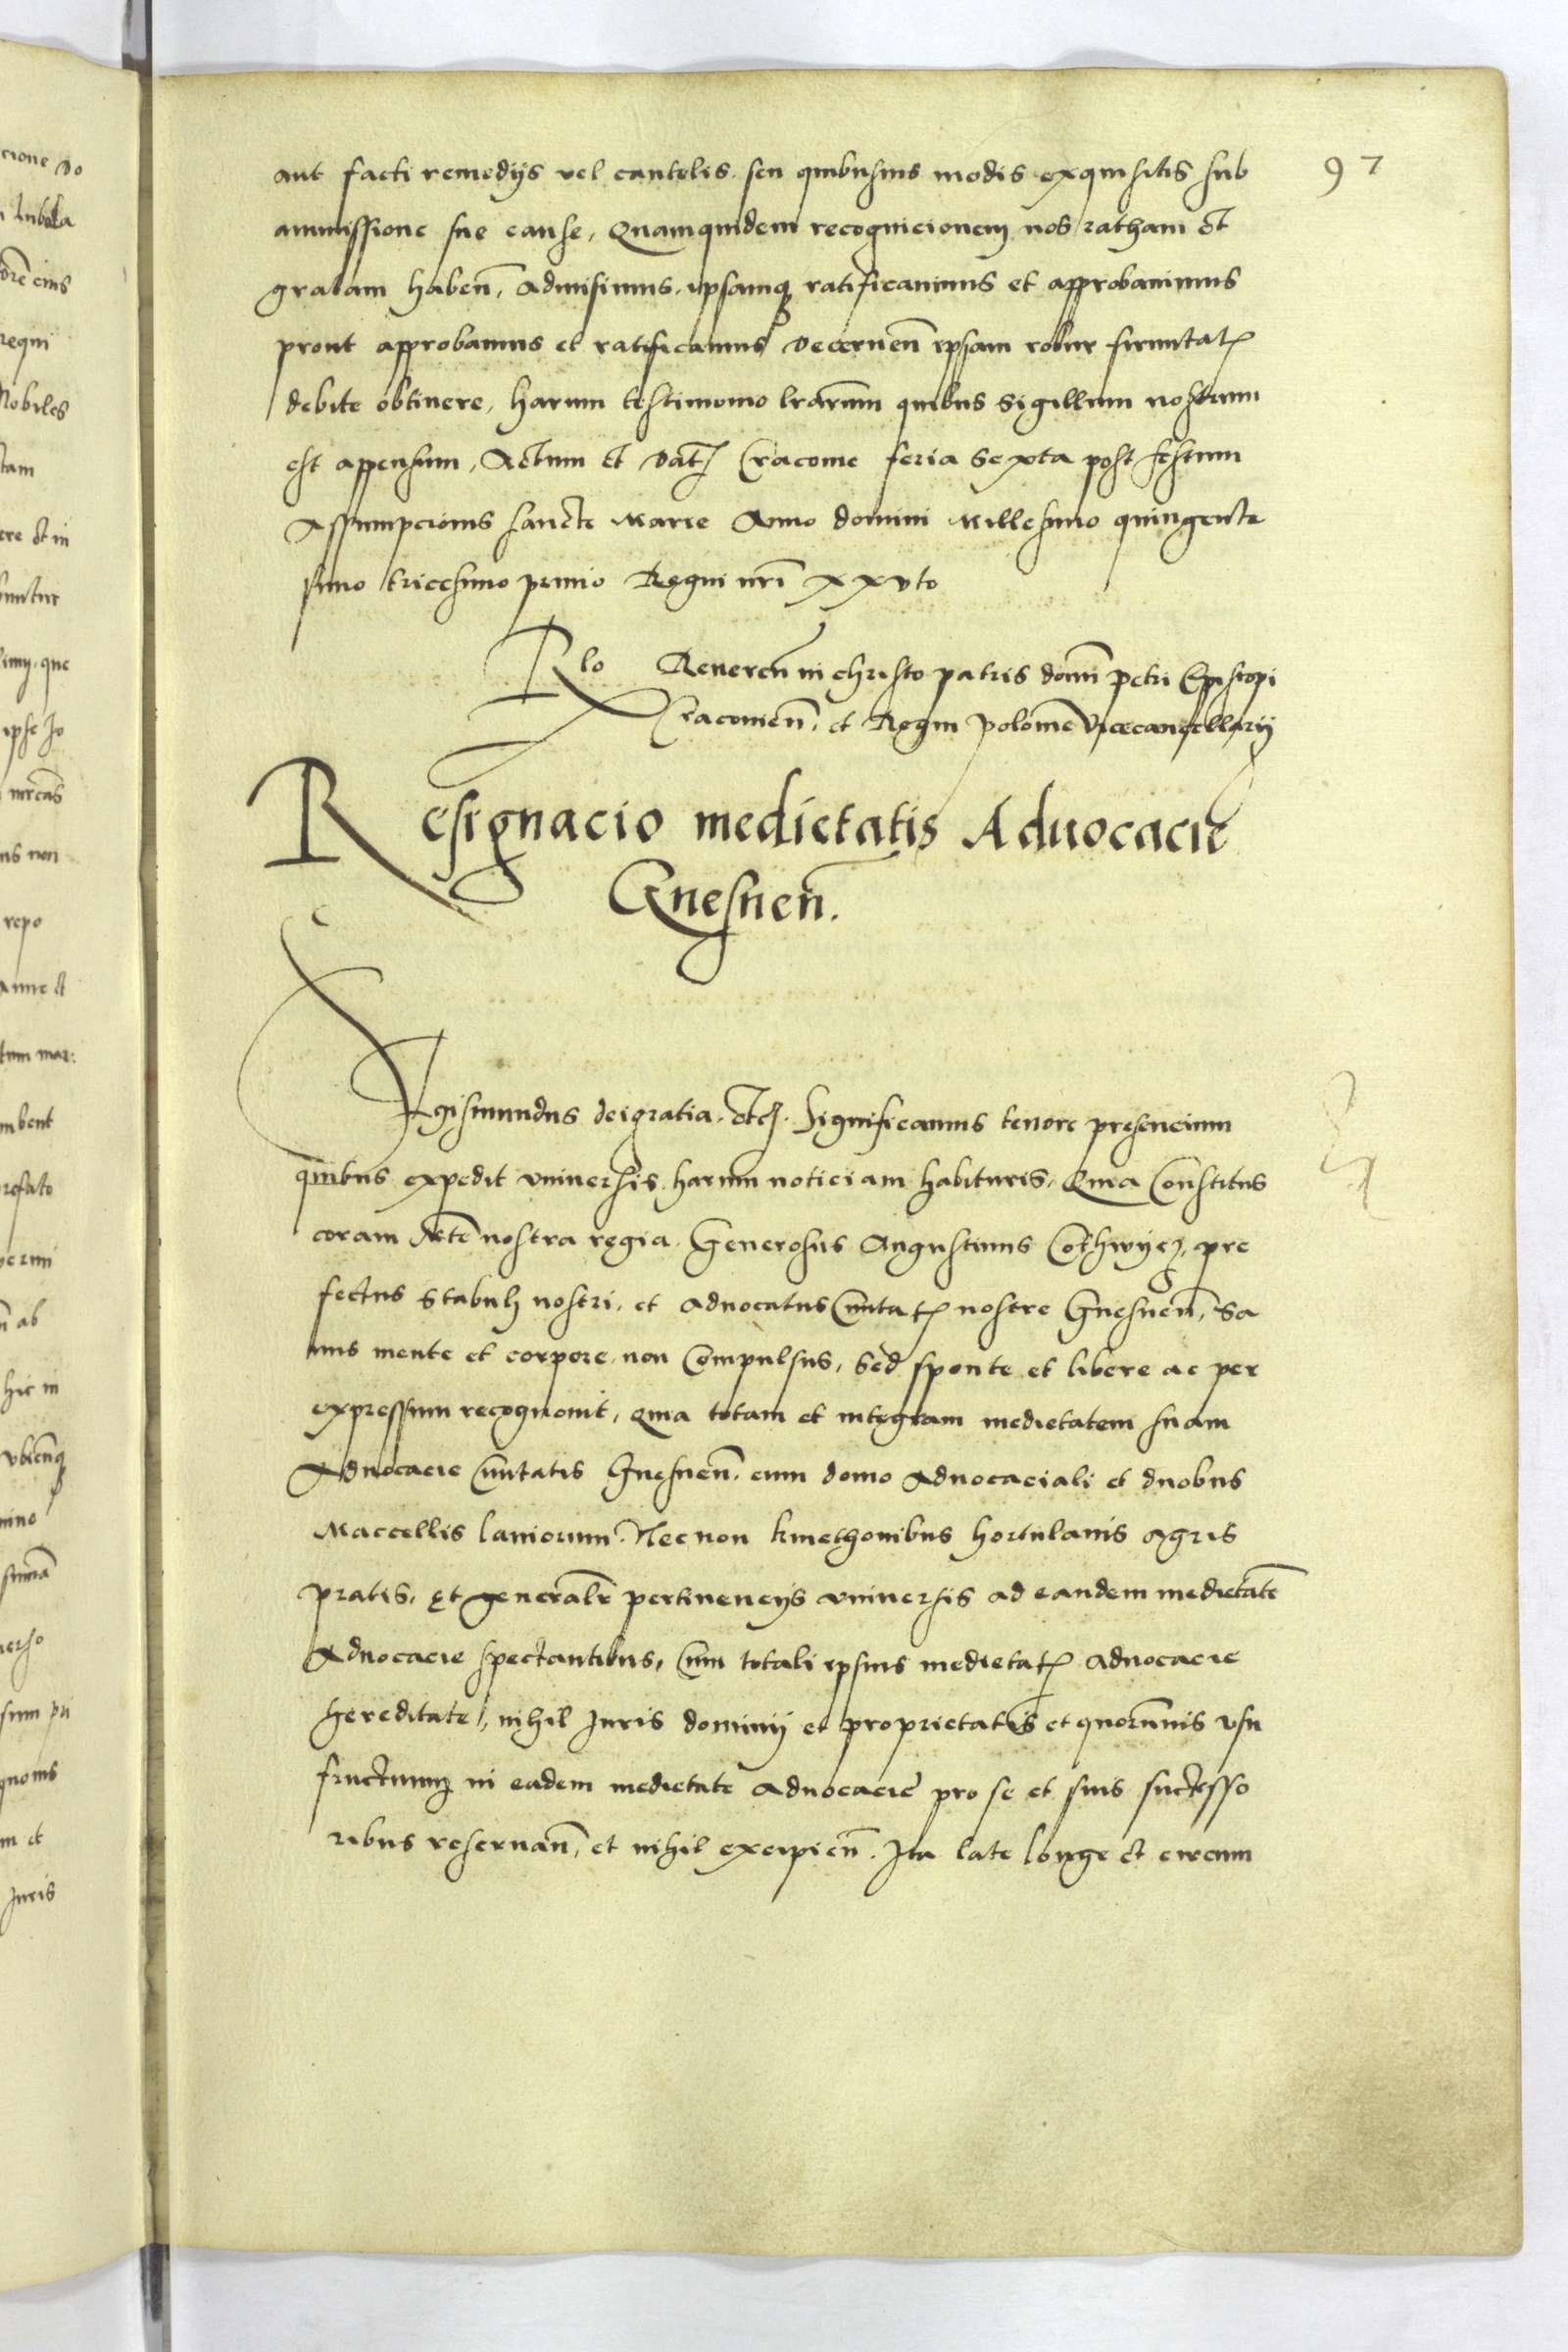 97
aut facti remedijs vel cautelis seu quibusuis modis exquisitis sub
ammissione sue cause, Quamquidem recognicionem nos ratham et
gratam haben̄, admisimus, ipsamq ratificauimus et approbauimus
prout approbamus et ratificamus decernen̄ ipsam robur firmitatꝭ
debite obtinere, harum testimonio lrārum quibus Sigillum nostrum
est appensum, Actum et datꝭ Cracouie feria Sexta post festum
Assumpcionis sancte Marie Anno domini Millesimo quingente
simo tricesimo primo Regni nrī xxvto
Rlo Reueren̄ in christo patris domī petri Episcopi
Cracouien̄. et Regni polonie Vicecancellarij
Resignacio medietatis Aduocacie
Gnesnen̄.
Sigismundus dei gratia. etcꝭ. Significamus tenore presencium
quibus expedit vniuersis harum noticiam habituris, Quia Constitus
coram Mte nostra regia. Generosus Augustinus Cothwycz, pre
fectus stabuli nostri, et aduocatus Ciuitatꝭ nostre Gnesnen̄, Sa
nus mente et corpore, non Compulsus, Sed sponte et libere ac per
expressum recognouit, Quia totam et integram medietatem suam
Aduocacie Ciuitatis Gnesnen̄. cum domo aduocaciali et duobus
Maccellis laniorum. Nec non kmethonibus hortulanis Agris
pratis, et generalr̄ pertinencijs vniuersis ad eandem medietatē
Aduocacie spectantibus, Cum totali ipsius medietatꝭ aduocacie
hereditate, nihil Juris dominij et proprietatis et quorumuis vsu
fructuumq in eadem medietate aduocacie pro se et suis successo
ribus reseruan̄, et nihil excipien̄. Ita late longe et circum